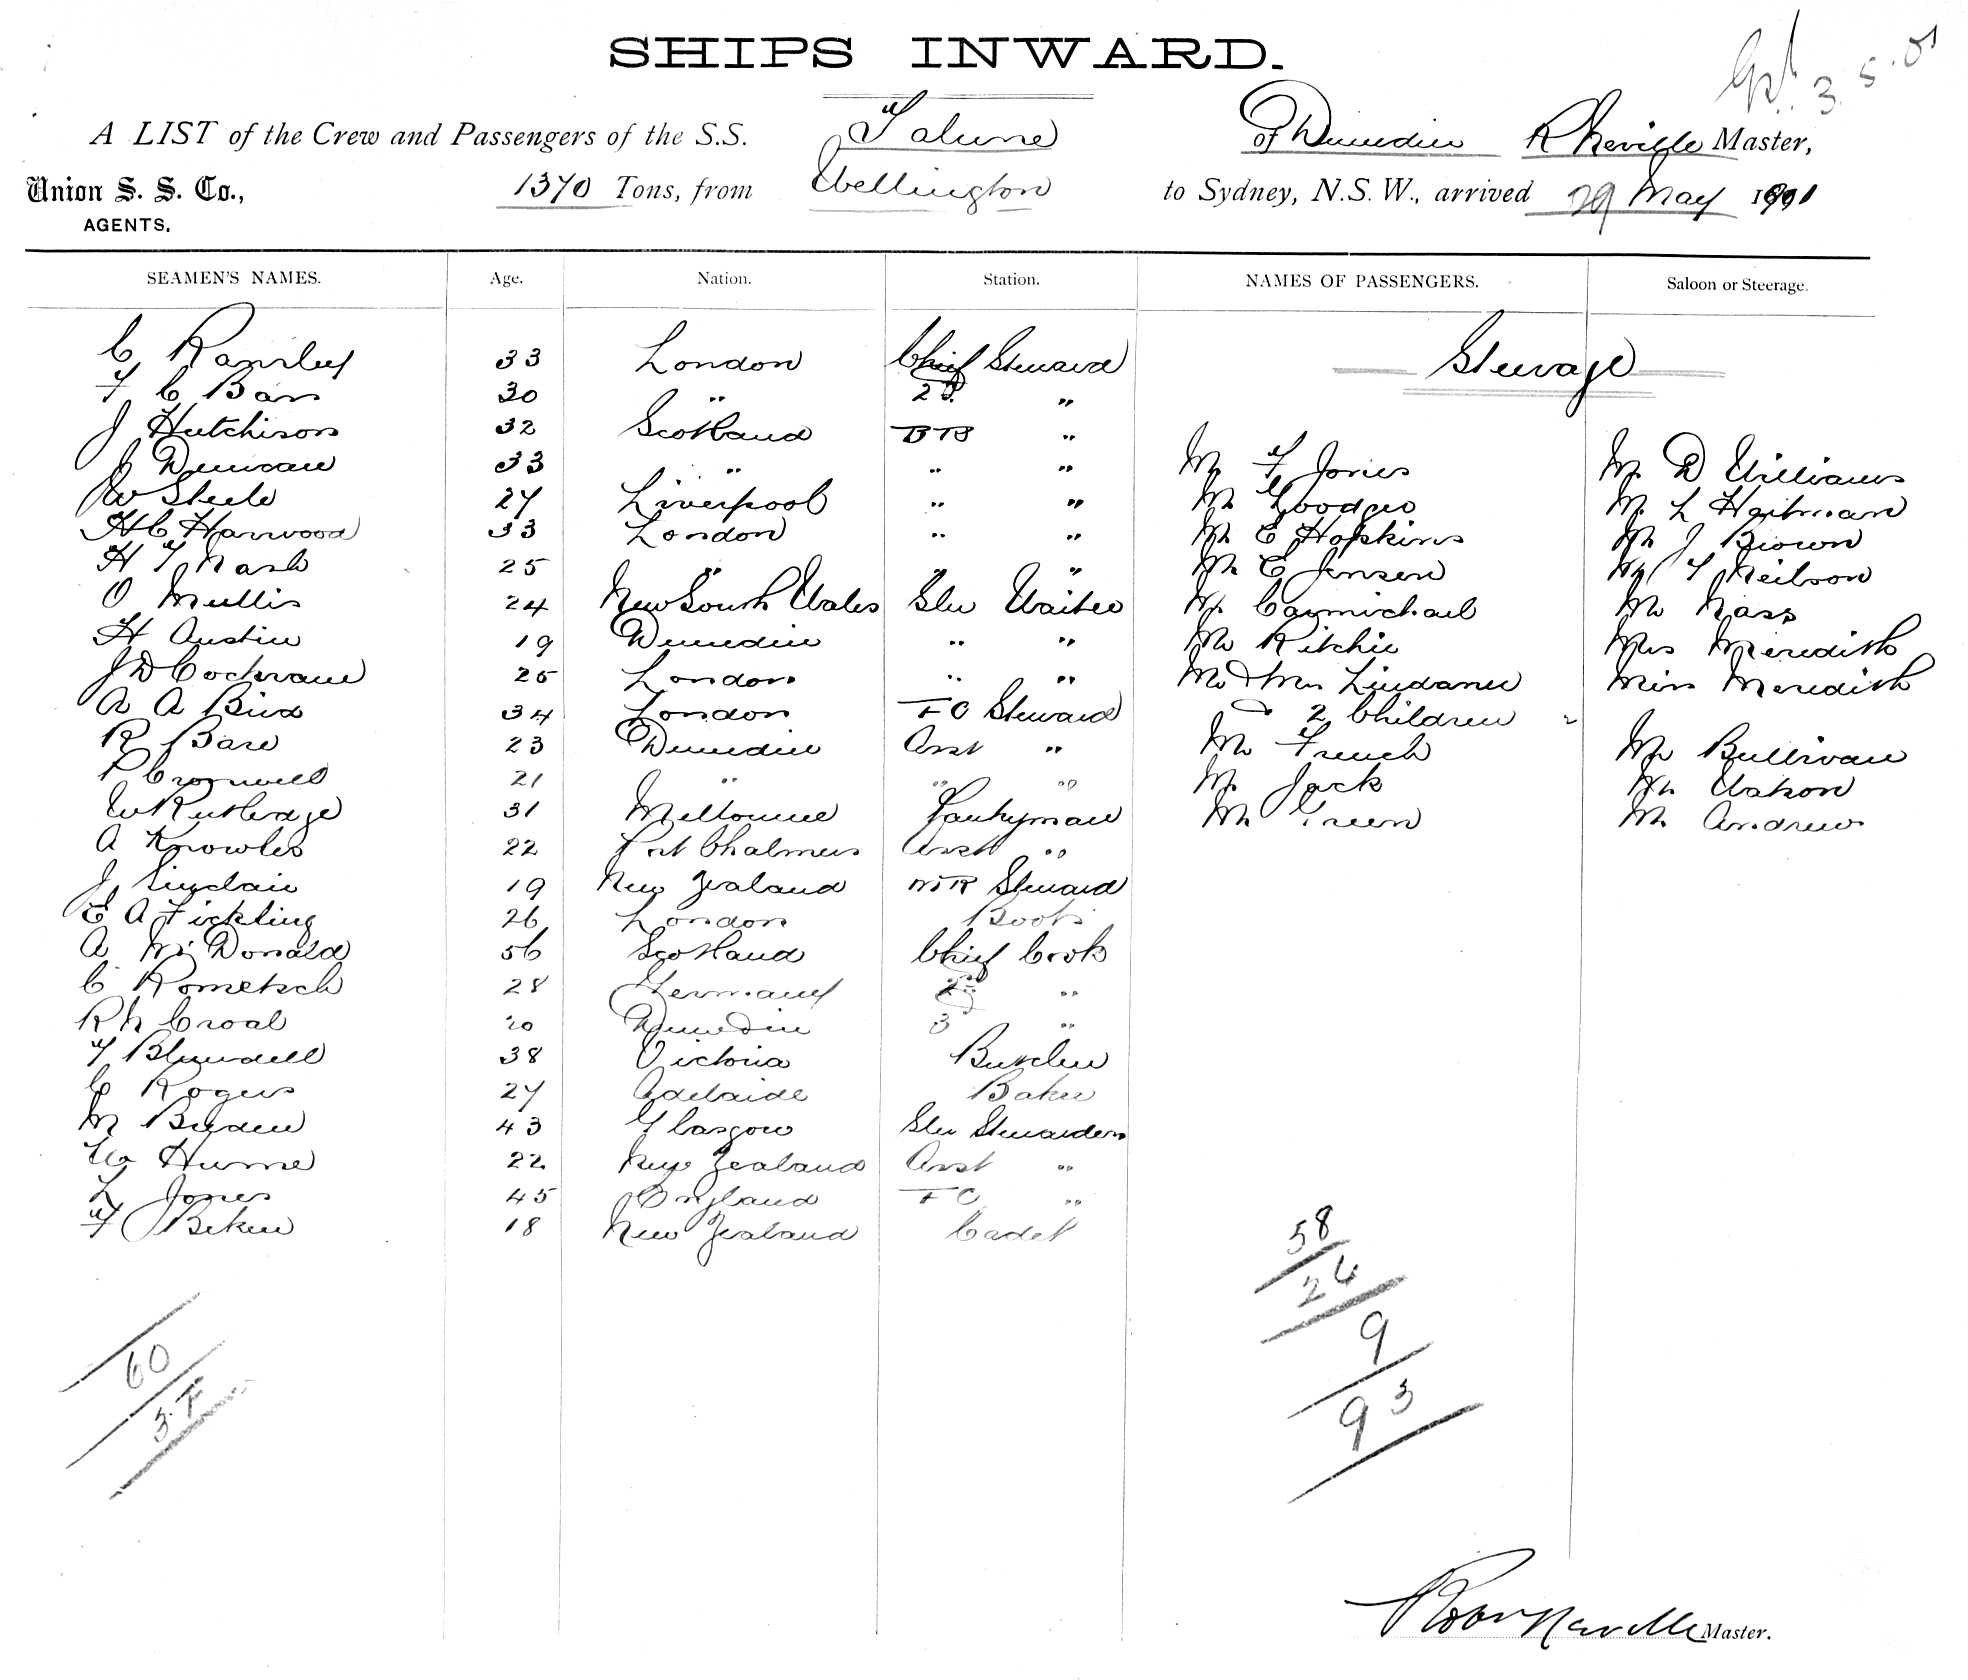 SHIPS INWARD.
3.5.01
A LIST of the Crew and Passengers of the S.S. Talune of Dunedin R Neville Master,
Union S. S. Co., AGENTS. 1370 Tons, from Wellington to Sydney, N.S.W., arrived 29 May 1901
SEAMEN'S NAMES. Age. Nation. Station. NAMES OF PASSENGERS. Saloon or Steerage.
Steerage
C Ransley 33 London Chief Steward
F C Barr 30 " 2d "
J Hutchison 32 Scotland BTB "
J Duncan 33 " " " Mr F Jones Mr D Williams
W Steele 27 Liverpool " " Mr Goodger Mr L Hartman
H C Harwood 33 London " " Mr E Hopkins Mr J Brown
H T Nash 25 " " " Mr C Jensen Mr T Neilson
O Mullis 24 New South Wales Sln Waiter Mr Carmichael Mr Nass
H Austin 19 Dunedin " " Mr Ritchie Mrs Meredith
J D Cochrane 25 London " " Mr & Mrs Lindaner Miss Meredith
A A Bird 34 London FC Steward 2 Children "
R Bare 23 Dunedin Asst " Mr French Mr Bullivan
P Cromwell 21 " " " Mr Jack Mr Watson
W Rutledge 31 Melbourne Pantryman Mr Green Mr Andrews
A Knowles 22 Port Chalmers Asst "
J Sinclair 19 New Zealand MR Steward
E A Fickling 26 London Boots
A McDonald 56 Scotland Chief Cook
C Rometsch 28 Germany 2d "
R N Croal 20 Dunedin 3 "
T Blundell 38 Victoria Butcher
C Rogers 27 Adelaide Baker
M Bryden 43 Glasgow Sln Stewardess
Hume 22 New Zealand Asst "
L Jones 45 England FC "
F Beken 18 New Zealand Cadet
58
26
9
93
60
37
Robt Neville Master.